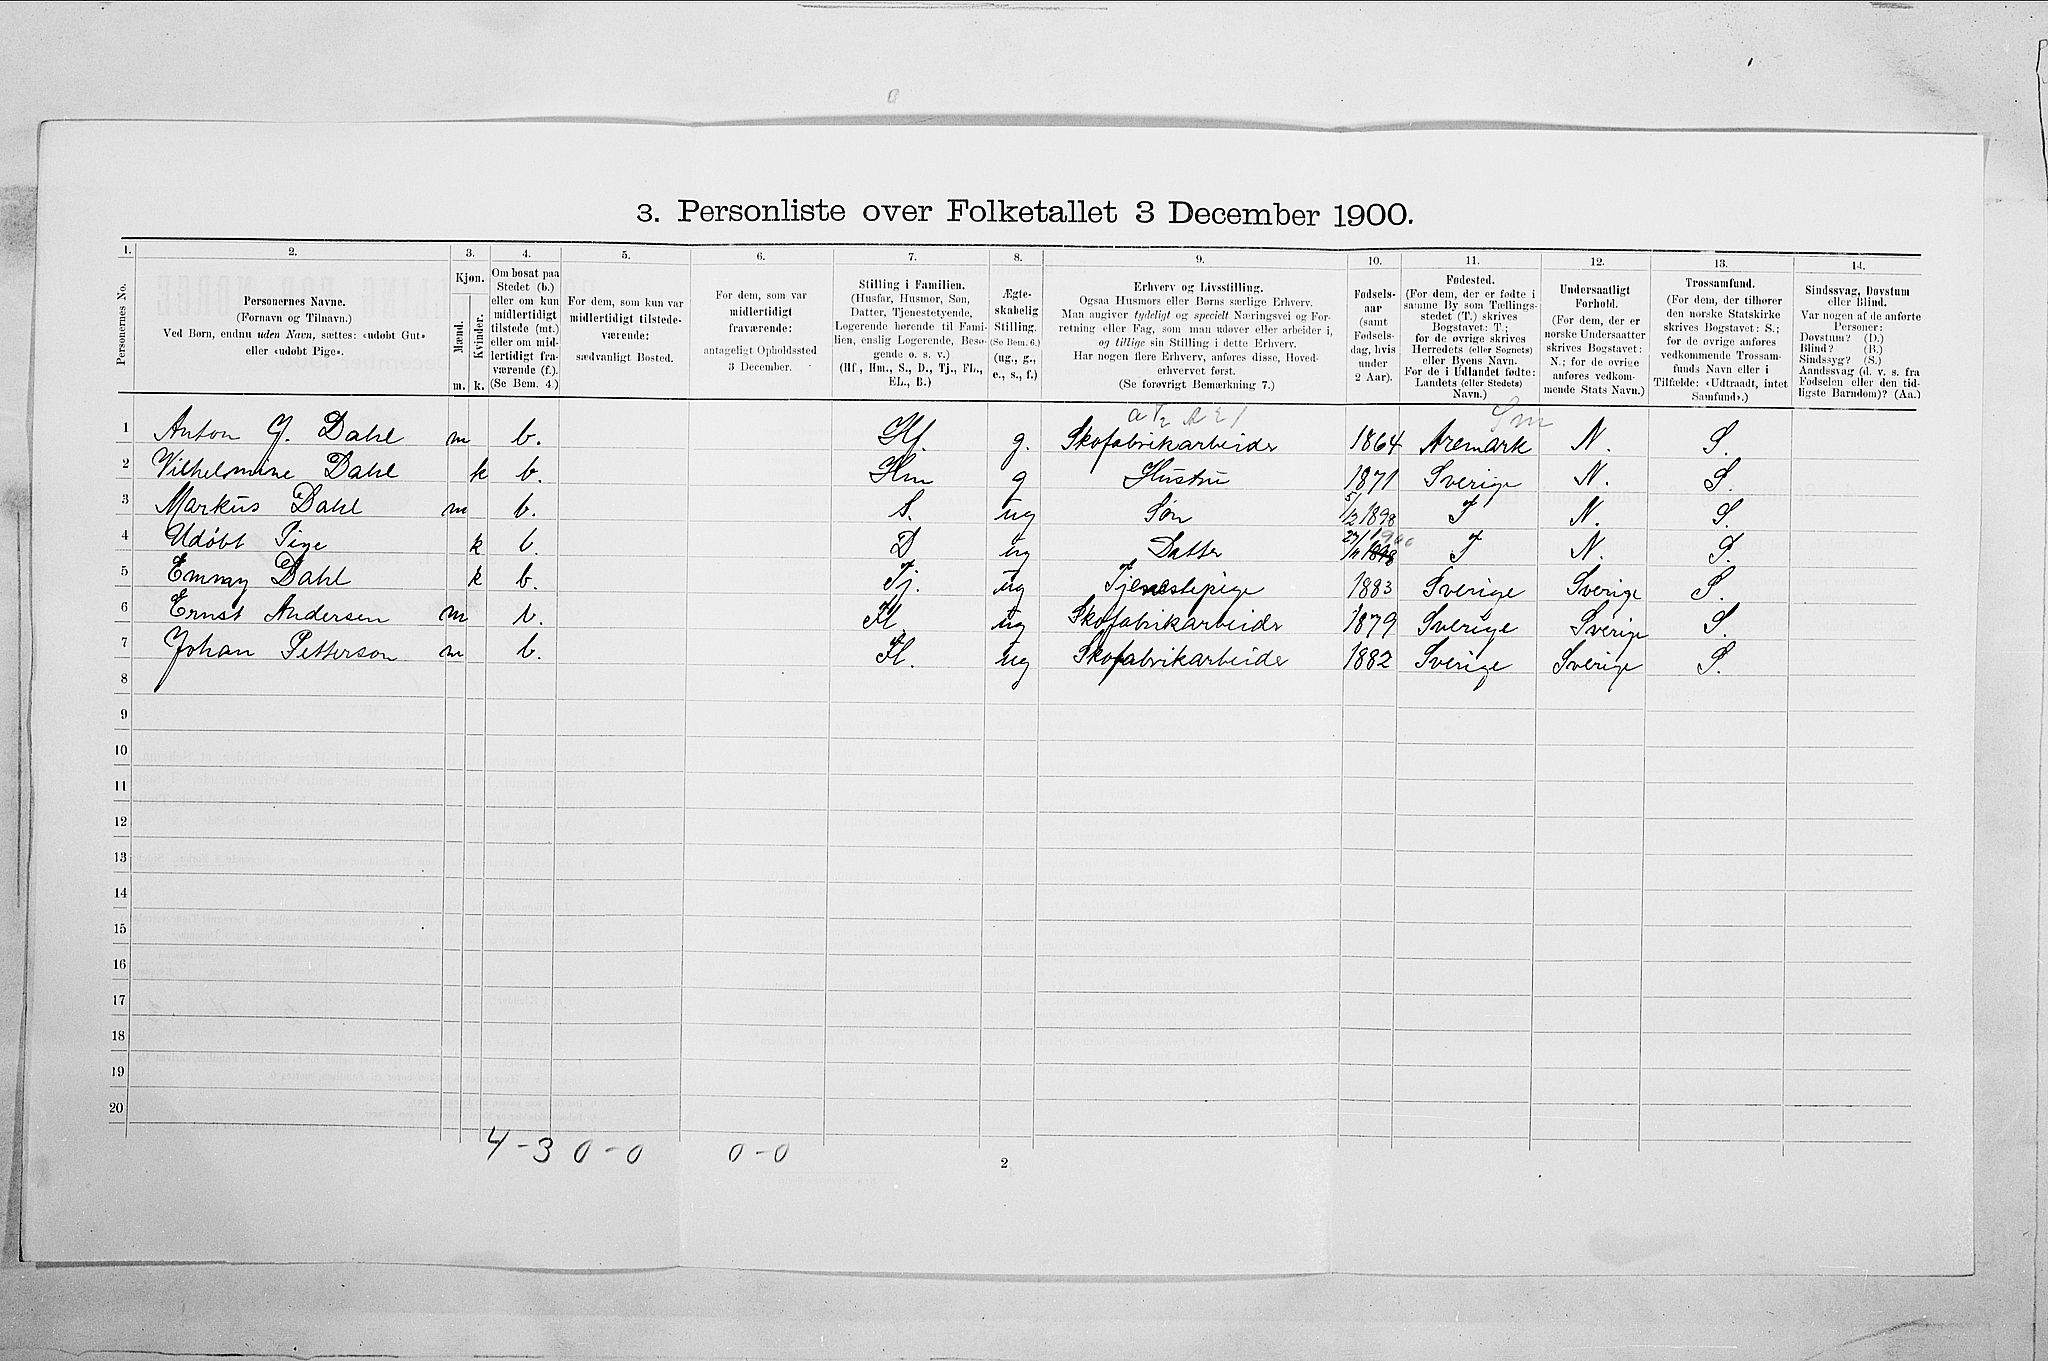 3. Personliste over Folketallet 3 December 1900.
1. 2. 3. 4. 5. 6. 7. 8. 9. 10. 11. 12. 13. 14.
Personernes No.
Personernes Navne.
(Fornavn og Tilnavn.)
Ved Børn, endnu uden Navn, sættes: «udøbt Gut»
eller «udøbt Pige».
Kjøn.
Mænd.
Kvinder.
m. k.
Om bosat paa
Stedet (b.)
eller om kun
midlertidigt
tilstede (mt.)
eller om mid-
lertidigt fra-
værende (f.).
(Se Bem. 4.)
For dem, som kun var
midlertidigt tilstede-
værende:
sædvanligt Bosted.
For dem, som var
midlertidigt
fraværende:
antageligt Opholdssted
3 December.
Stilling i Familien.
(Husfar, Husmor, Søn,
Datter, Tjenestetyende,
Logerende hørende til Fami-
lien, enslig Logerende, Besø-
gende o. s. v.)
(Hf., Hm., S., D., Tj., FL.,
EL., B.)
Ægte-
skabelig
Stilling.
(Se Bem. 6.)
(ug., g.,
e., s., f.)
Erhverv og Livsstilling.
Ogsaa Husmors eller Børns særlige Erhverv.
Man angiver tydeligt og specielt Næringsvei og For-
retning eller Fag, som man udøver eller arbeider i,
og tillige sin Stilling i dette Erhverv.
Har nogen flere Erhverv, anføres disse, Hoved-
erhvervet først.
(Se forøvrigt Bemærkning 7.)
Fødsels-
aar
(samt
Fødsels-
dag, hvis
under
2 Aar).
Fødested.
(For dem, der er fødte i
samme By som Tællings-
stedet (T.) skrives
Bogstavet: T.;
for de øvrige skrives
Herredets (eller Sognets)
eller Byens Navn.
For de i Udlandet fødte:
Landets (eller Stedets)
Navn.)
Undersaatligt
Forhold.
(For dem, der er
norske Undersaatter
skrives Bogstavet:
N.; for de øvrige
anføres vedkom-
mende Stats Navn.)
Trossamfund.
(For dem, der tilhører
den norske Statskirke
skrives Bogstavet: S.;
for de øvrige anføres
vedkommende Trossam-
funds Navn eller i
Tilfælde: «Udtraadt, intet
Samfund».)
Sindssvag, Døvstum
eller Blind.
Var nogen af de anførte
Personer:
Døvstum? (D.)
Blind? (B.)
Sindssyg? (S.)
Aandssvag (d. v. s. fra
Fødselen eller den tid-
ligste Barndom)? (Aa.)
1 Anton G. Dahl m b. Hf. g. Skofabrikarbeider 1864 Aremark N. S.
2 Vilhelmine Dahl k b. Hm g Hustru 1871 Sverige N. S.
3 Markus Dahl m b. S. ug Søn 5/12 1898 T N. S.
4 Udøbt Pige k b. D ug Datter 27/11 1900 T N. S.
5 Emmy Dahl k b. Tj. ug Tjenestepige 1883 Sverige Sverige S.
6 Ernst Andersen m b. Fl. ug Skofabrikarbeider 1879 Sverige Sverige S.
7 Johan Petterson m b. Fl. ug Skofabrikarbeider 1882 Sverige Sverige S.
8
9
10
11
12
13
14
15
16
17
18
19
20
4-3 0-0 0-0
2